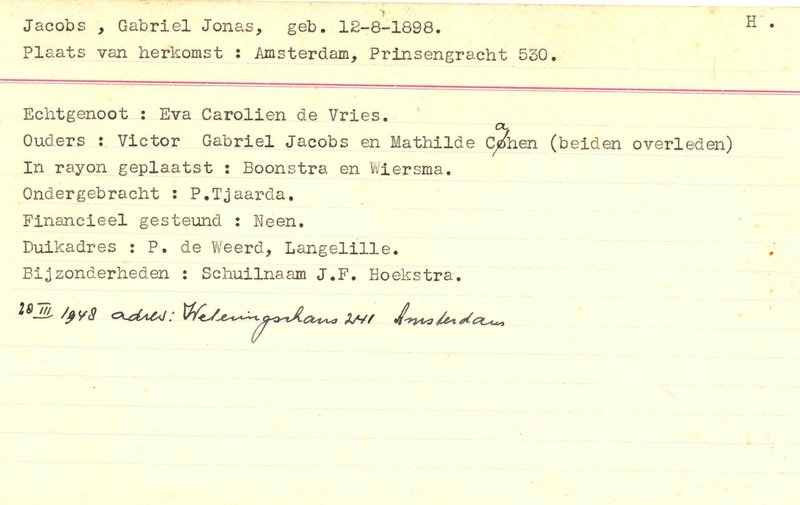 Jacobs , Gabriel Jonas, geb. 12-8-1898. H .
Plaats van herkomst : Amsterdam, Prinsengracht 530.
Echtgenoot : Eva Carolien de Vries.
Ouders : Victor Gabriel Jacobs en Mathilde Cahen (beiden overleden)
In rayon geplaatst : Boonstra en Wiersma.
Ondergebracht : P.Tjaarda.
Financieel gesteund : Neen.
Duikadres : P. de Weerd, Langelille.
Bijzonderheden : Schuilnaam J.F. Hoekstra.
28 III 1948 adres: Amsterdam